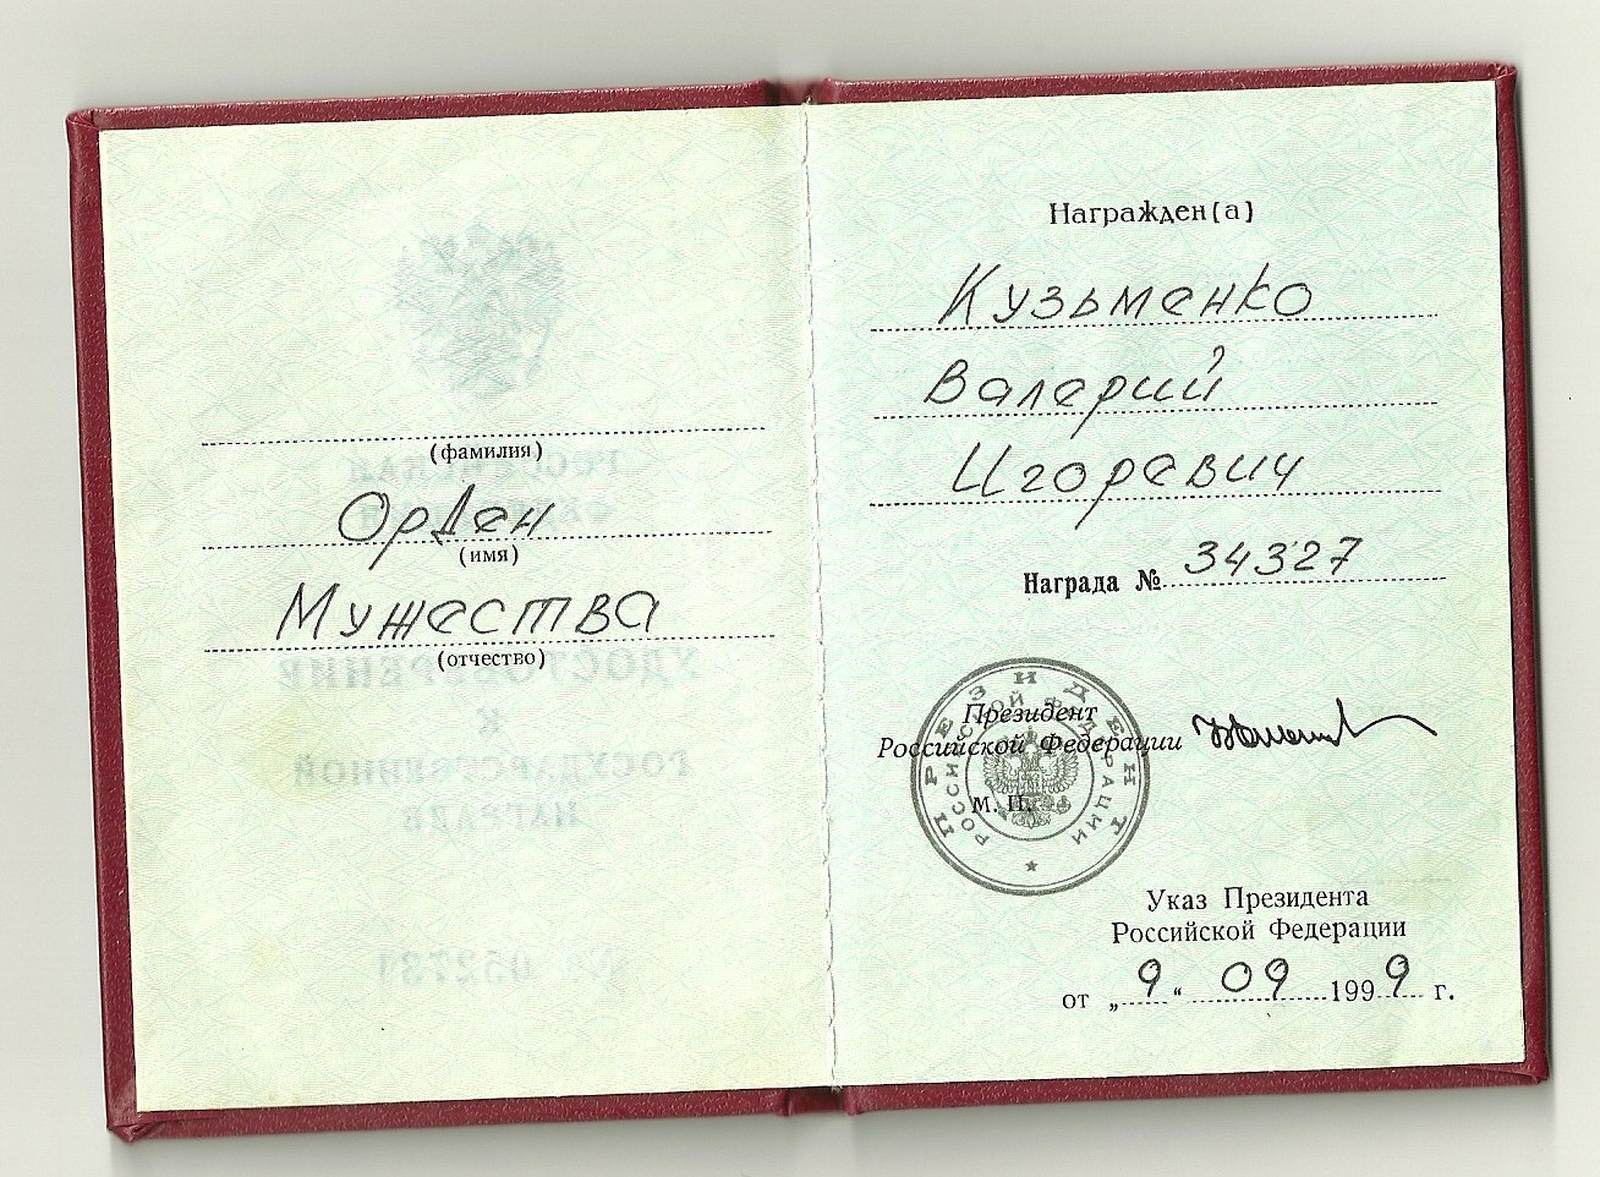 Орден
(фамилия)
(имя)
Мужества
(отчество)
Награжден(а)
Кузьменко
Валерий
Игоревич
Награда № 34327
Президент
Российской Федерации
М. П.
ПРЕЗИДЕНТ
РОССИЙСКОЙ ФЕДЕРАЦИИ
Указ Президента
Российской Федерации
от „ 9 “ 09 1999 г.
РОССИЙСКАЯ
УДОСТОВЕРЕНИЕ
К
ГОСУДАРСТВЕННОЙ
НАГРАДЕ